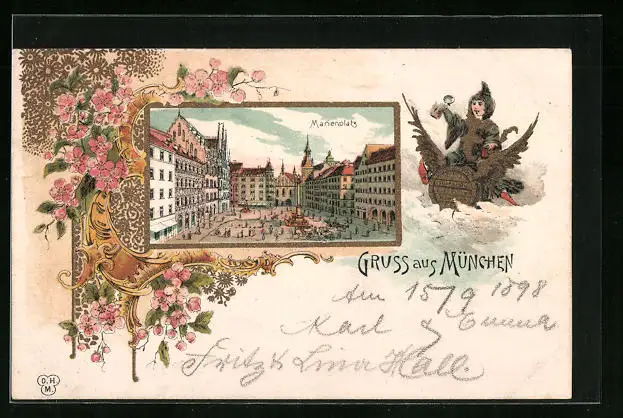 Marienplatz
GRUSS aus MÜNCHEN
Am 15/9 1898
Karl & Emma
Fritz & Lina Hall.
O.H.
M.